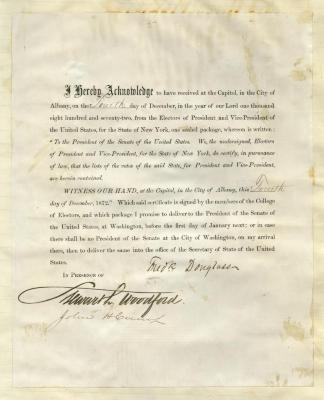 I Hereby Acknowledge to have received at the Capitol, in the City of
Albany, on the Fourth day of December, in the year of our Lord one thousand
eight hundred and seventy-two, from the Electors of President and Vice-President of
the United States, for the State of New York, one sealed package, whereon is written:
"To the President of the Senate of the United States. We, the undersigned, Electors
of President and Vice-President, for the State of New York, do certify, in pursuance
of law, that the lists of the votes of the said State, for President and Vice-President,
are herein contained.
WITNESS OUR HAND, at the Capitol, in the City of Albany, this Fourth
day of December, 1872." Which said certificate is signed by the members of the College
of Electors, and which package I promise to deliver to the President of the Senate of the
United States, at Washington, before the first day of January next; or in case
there shall be no President of the Senate at the City of Washington, on my arrival
there, then to deliver the same into the office of the Secretary of State of the United
States.
Fredk Douglass
IN PRESENCE OF
Stewart L. Woodford.
John H